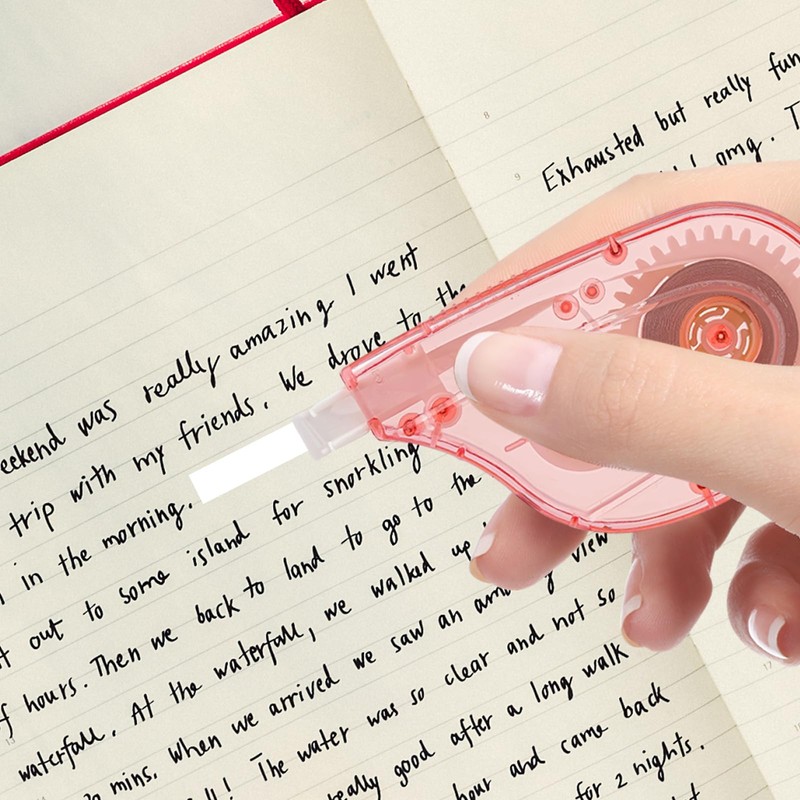 weekend was really amazing I went
trip with my friends. We drove to the
in the morning.
out to some island for snorkling
f hours. Then we back to land to go to the
waterfall. At the waterfall, we walked up
mins. When we arrived we saw an view
The water was so clear and not so
really good after a long walk
hour and came back
for 2 nights.
8
Exhausted but really fun
9
omg. T
17